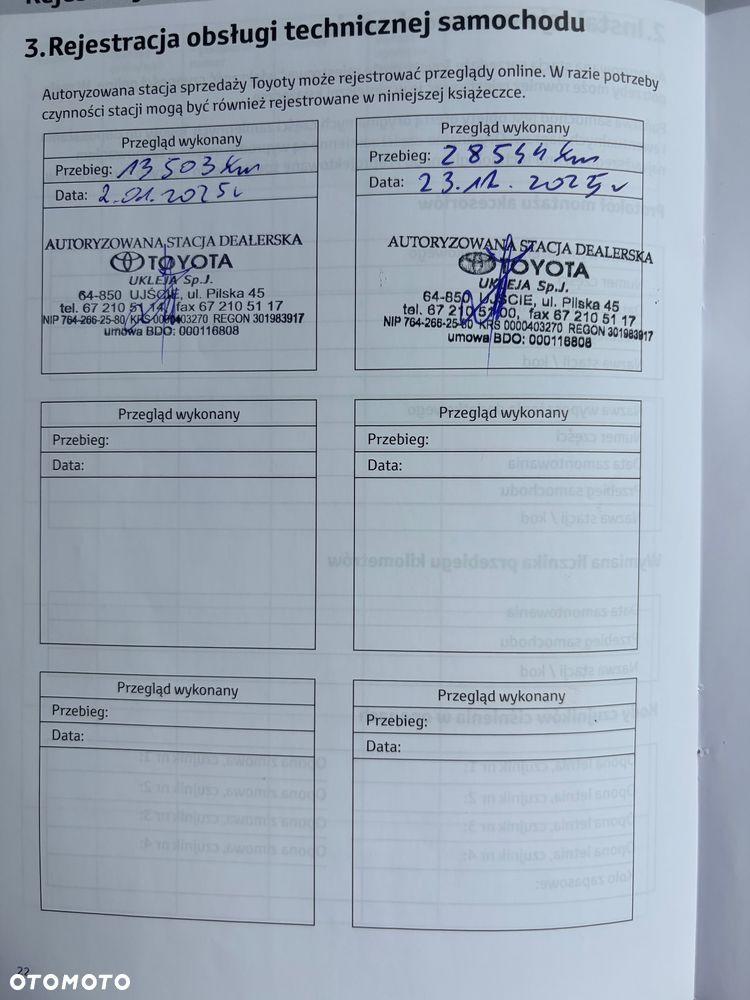 3. Rejestracja obsługi technicznej samochodu
Autoryzowana stacja sprzedaży Toyoty może rejestrować przeglądy online. W razie potrzeby
czynności stacji mogą być również rejestrowane w niniejszej książeczce.
Przegląd wykonany
Przebieg: 13 503 km
Data: 2.01.2025r
AUTORYZOWANA STACJA DEALERSKA
TOYOTA
UKLEJA Sp.J.
64-850 UJŚCIE, ul. Pilska 45
tel. 67 210 51 14, fax 67 210 51 17
NIP 764-266-25-80 KRS 0000403270 REGON 301983917
umowa BDO: 000116808
Przegląd wykonany
Przebieg: 28544 km
Data: 23.12.2025r
AUTORYZOWANA STACJA DEALERSKA
TOYOTA
UKLEJA Sp.J.
64-850 UJŚCIE, ul. Pilska 45
tel. 67 210 51 00, fax 67 210 51 17
NIP 764-266-25-80 KRS 0000403270 REGON 301983917
umowa BDO: 000116808
Przegląd wykonany
Przebieg:
Data:
Przegląd wykonany
Przebieg:
Data:
Przegląd wykonany
Przebieg:
Data:
Przegląd wykonany
Przebieg:
Data:
22
OTOMOTO